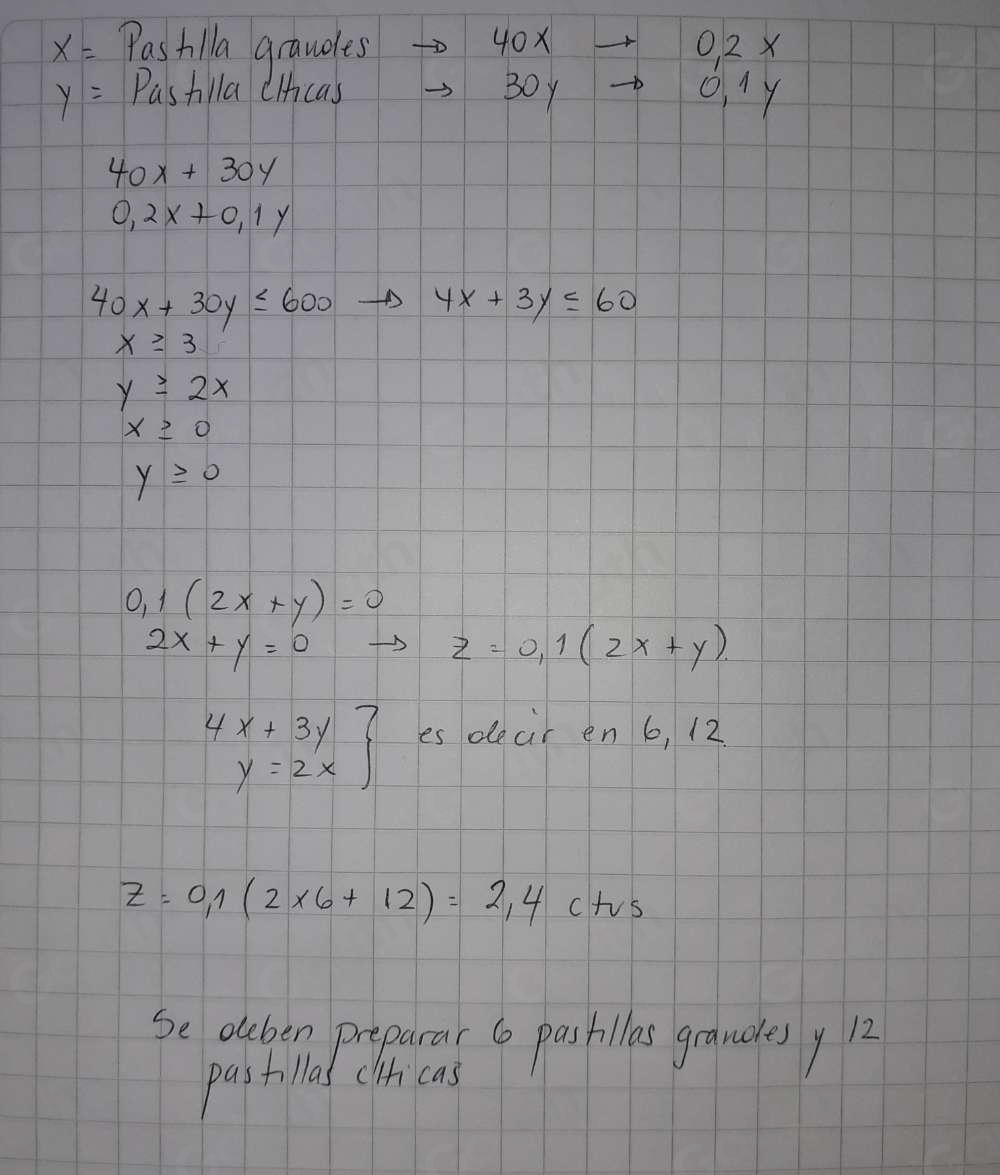 x = Pastilla grandes → 40x → 0,2x
y = Pastilla clticas → 30y → 0,1y
40x + 30y
0,2x+0,1y
40x + 30y ≤ 600 → 4x + 3y ≤ 60
x ≥ 3
y ≥ 2x
x ≥ 0
y ≥ 0
0,1(2x+y) = 0
2x + y = 0 → z = 0,1(2x+y).
4x + 3y } es decir en 6, 12.
y = 2x
z = 0,1(2×6+12) = 2,4 ctvs
Se deben preparar 6 pastillas grandes y 12
pastillas clticas